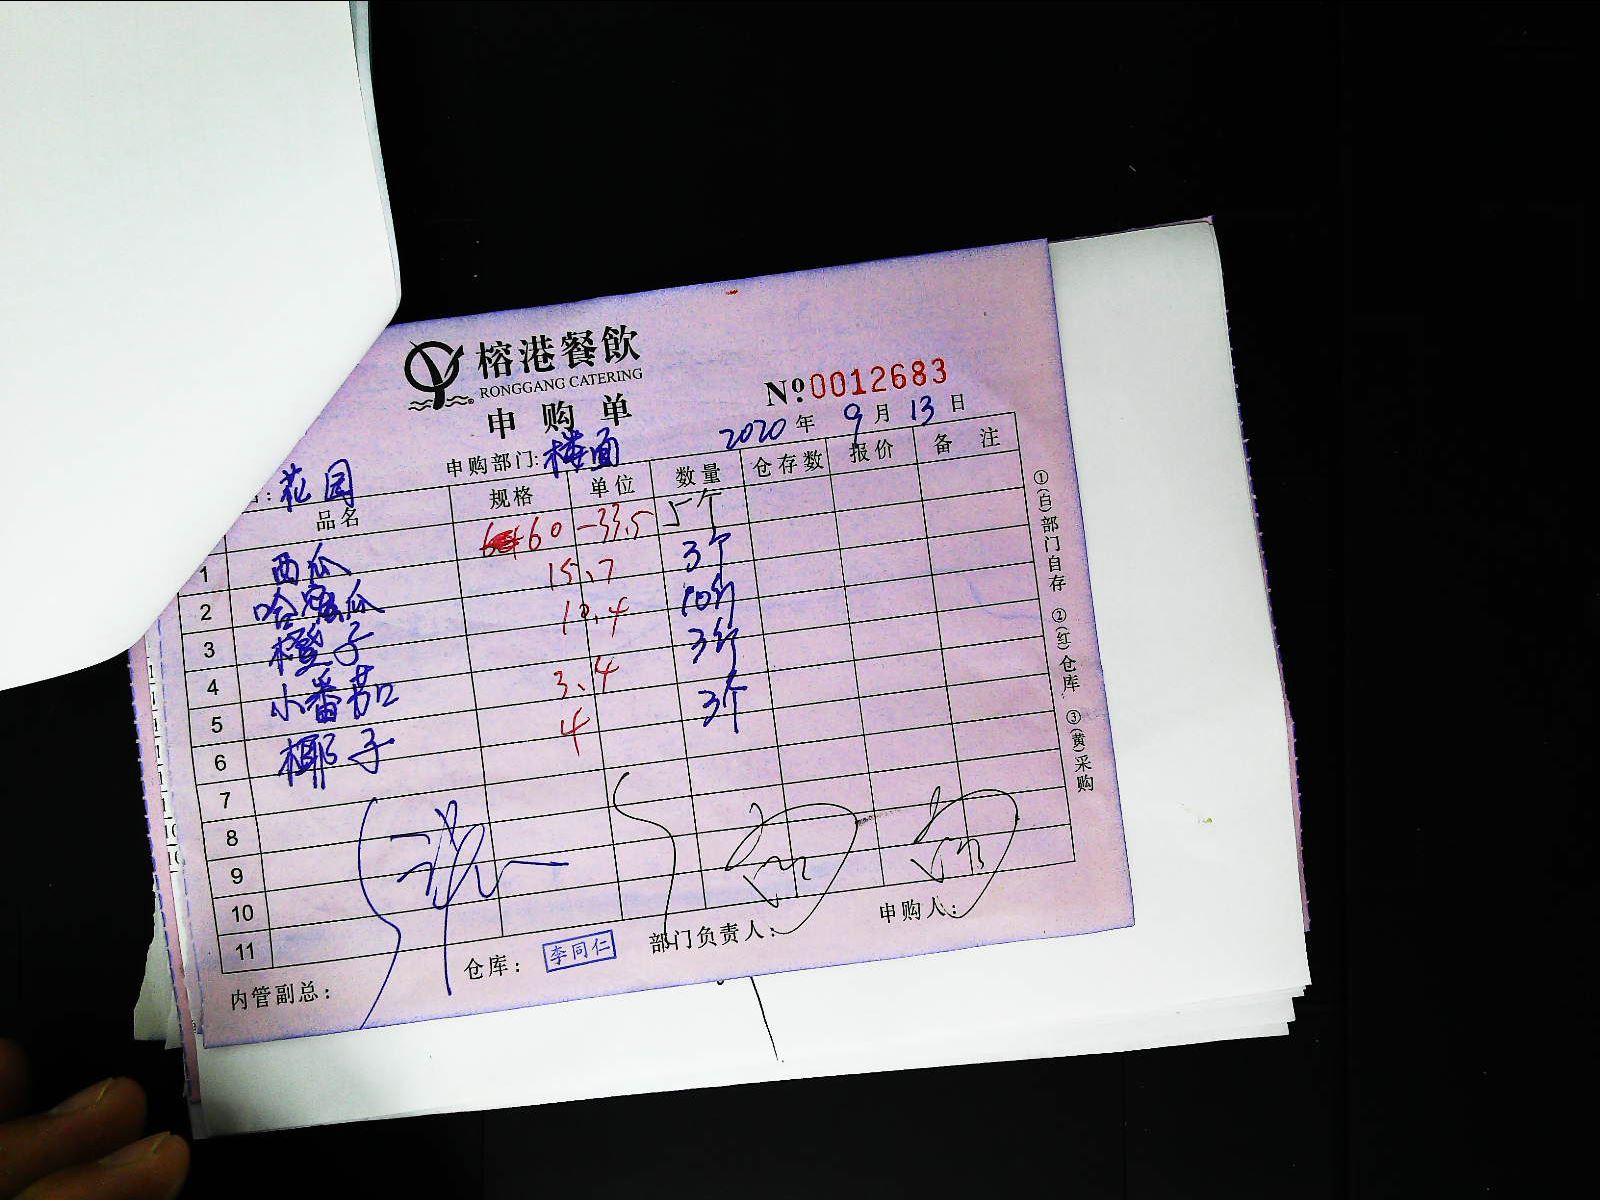 榕港餐飲
RONGGANG CATERING
申购单
Nº:0012683
：花园
申购部门:楼面
2020年9月13日
品名 规格 单位 数量 仓存数 报价 备注
1 西瓜 60-33.5 5个
2 哈密瓜 15.7 3个
3 橙子 10.4 10个
4 小番茄 3.4 3斤
5 椰子 4 3个
6
7
8
9
10
11
内管副总：
仓库：李同仁
部门负责人：
申购人：
①(白)部门自存 ②(红)仓库 ③(黄)采购